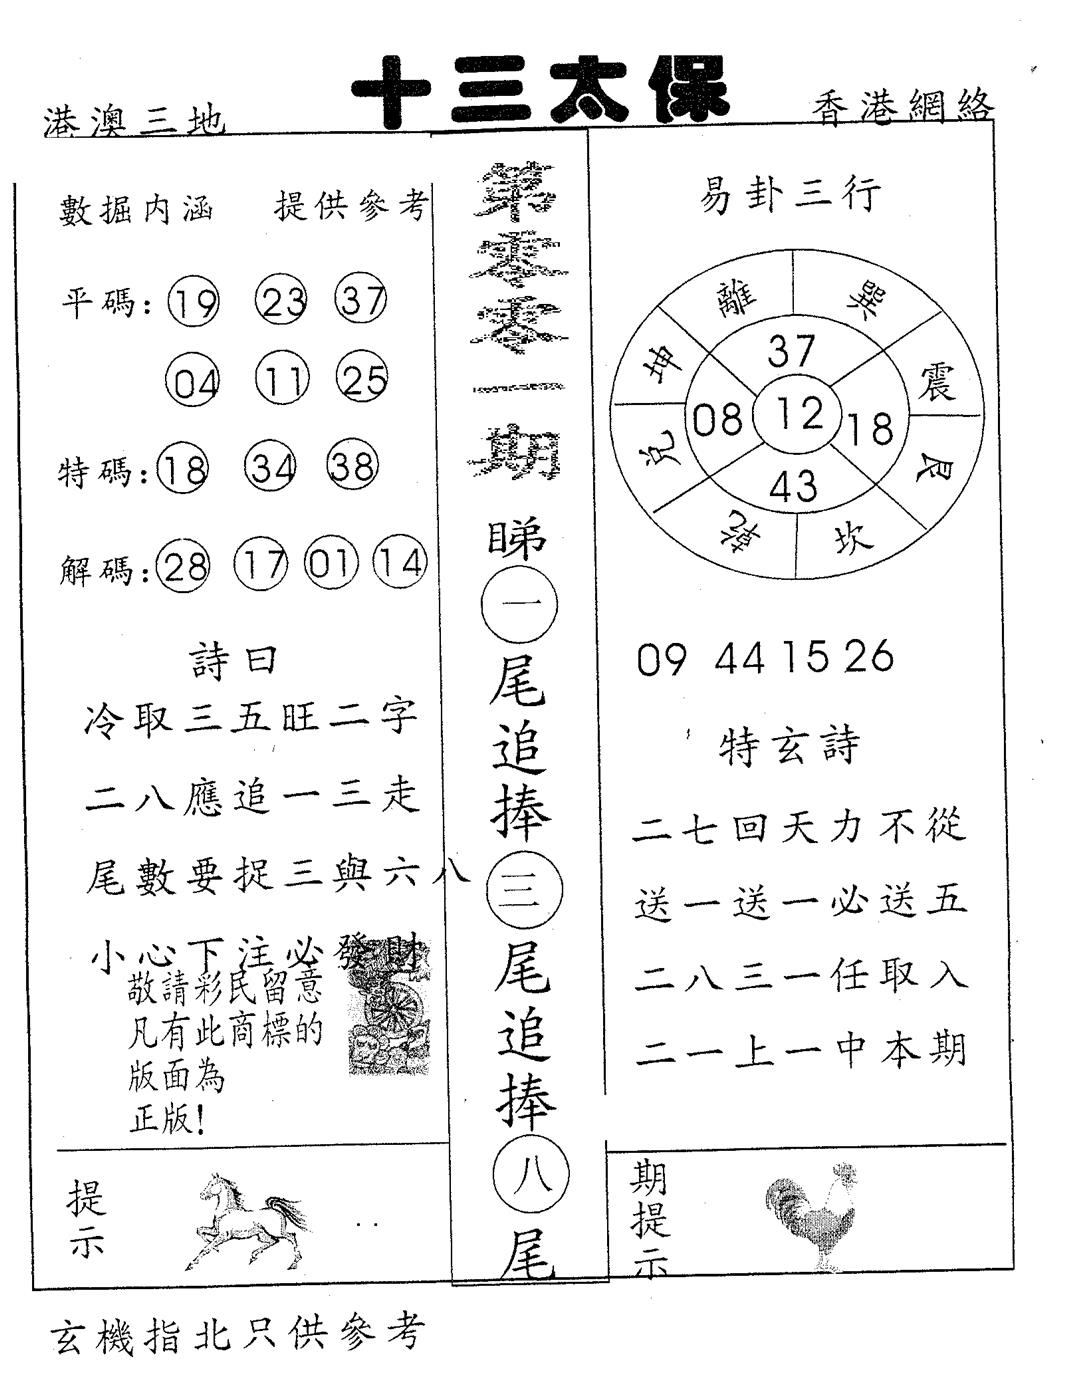 十三太保
港澳三地
香港網絡
數掘内涵 提供參考
平碼: 19 23 37
04 11 25
特碼: 18 34 38
解碼: 28 17 01 14
詩曰
冷取三五旺二字
二八應追一三走
尾數要捉三與六八
小心下注必發財
敬請彩民留意
凡有此商標的
版面為
正版!
提示
第零零一期
睇一尾追捧三尾追捧八尾
易卦三行
離 巽
坤 震
兑 艮
乾 坎
37
08 12 18
43
09 44 15 26
特玄詩
二七回天力不從
送一送一必送五
二八三一任取入
二一上一中本期
期提示
玄機指北只供參考